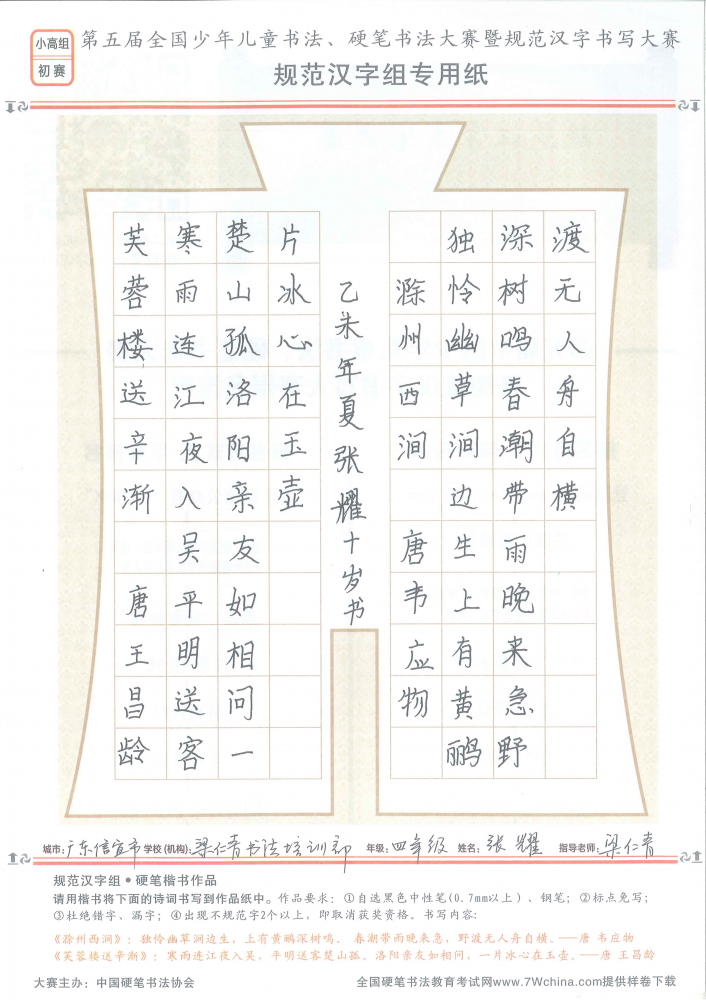 小高组
初赛
第五届全国少年儿童书法、硬笔书法大赛暨规范汉字书写大赛
规范汉字组专用纸
芙蓉楼送辛渐 唐王昌龄
寒雨连江夜入吴平明送客
楚山孤洛阳亲友如相问一
片冰心在玉壶
乙未年夏张耀十岁书
滁州西涧 唐韦应物
独怜幽草涧边生上有黄鹂
深树鸣春潮带雨晚来急野
渡无人舟自横
城市:广东信宜市 学校(机构):梁仁青书法培训部 年级:四年级 姓名:张耀 指导老师:梁仁青
规范汉字组•硬笔楷书作品
请用楷书将下面的诗词书写到作品纸中。作品要求:①自选黑色中性笔(0.7mm以上)、钢笔;②标点免写;
③杜绝错字、漏字;④出现不规范字2个以上,即取消获奖资格。书写内容:
《滁州西涧》:独怜幽草涧边生,上有黄鹂深树鸣。 春潮带雨晚来急,野渡无人舟自横。——唐 韦应物
《芙蓉楼送辛渐》:寒雨连江夜入吴,平明送客楚山孤。洛阳亲友如相问,一片冰心在玉壶。——唐 王昌龄
大赛主办:中国硬笔书法协会
全国硬笔书法教育考试网www.7Wchina.com提供样卷下载